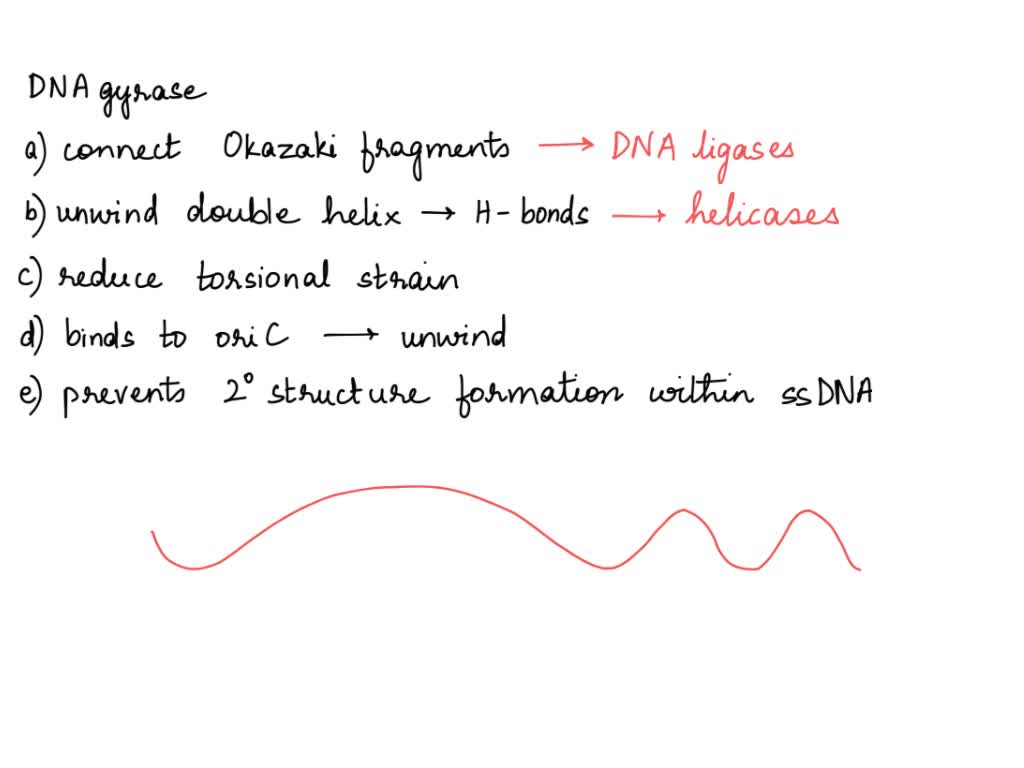 DNA gyrase
a) connect Okazaki fragments → DNA ligases
b) unwind double helix → H-bonds → helicases
c) reduce torsional strain
d) binds to oriC → unwind
e) prevents 2° structure formation within ssDNA